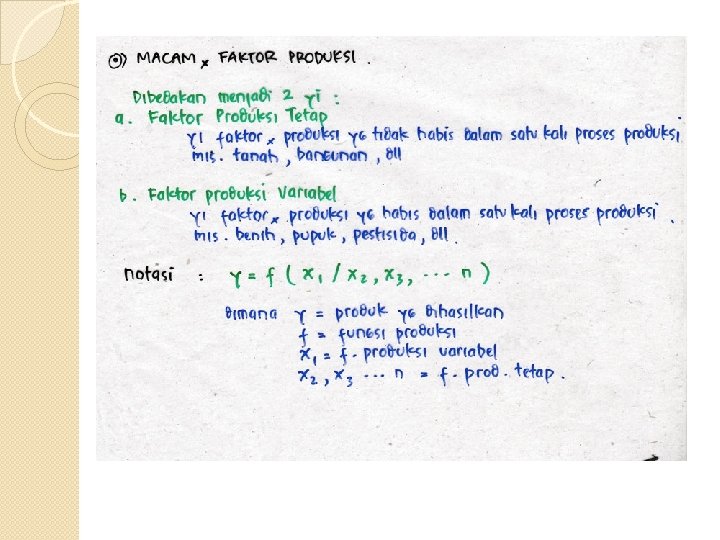 ⊙) MACAM × FAKTOR PRODUKSI .
Dibedakan menjadi 2 yi :
a. Faktor Produksi Tetap
yi faktor × produksi yg tidak habis dalam satu kali proses produksi.
mis. tanah , bangunan , dll
b. Faktor produksi Variabel
yi faktor × produksi yg habis dalam satu kali proses produksi .
mis. benih , pupuk , pestisida , dll .
notasi : Y = f ( X₁ / X₂ , X₃ , ... n )
dimana Y = produk yg dihasilkan
f = fungsi produksi
X₁ = f. produksi variabel
X₂ , X₃ ... n = f. prod. tetap .